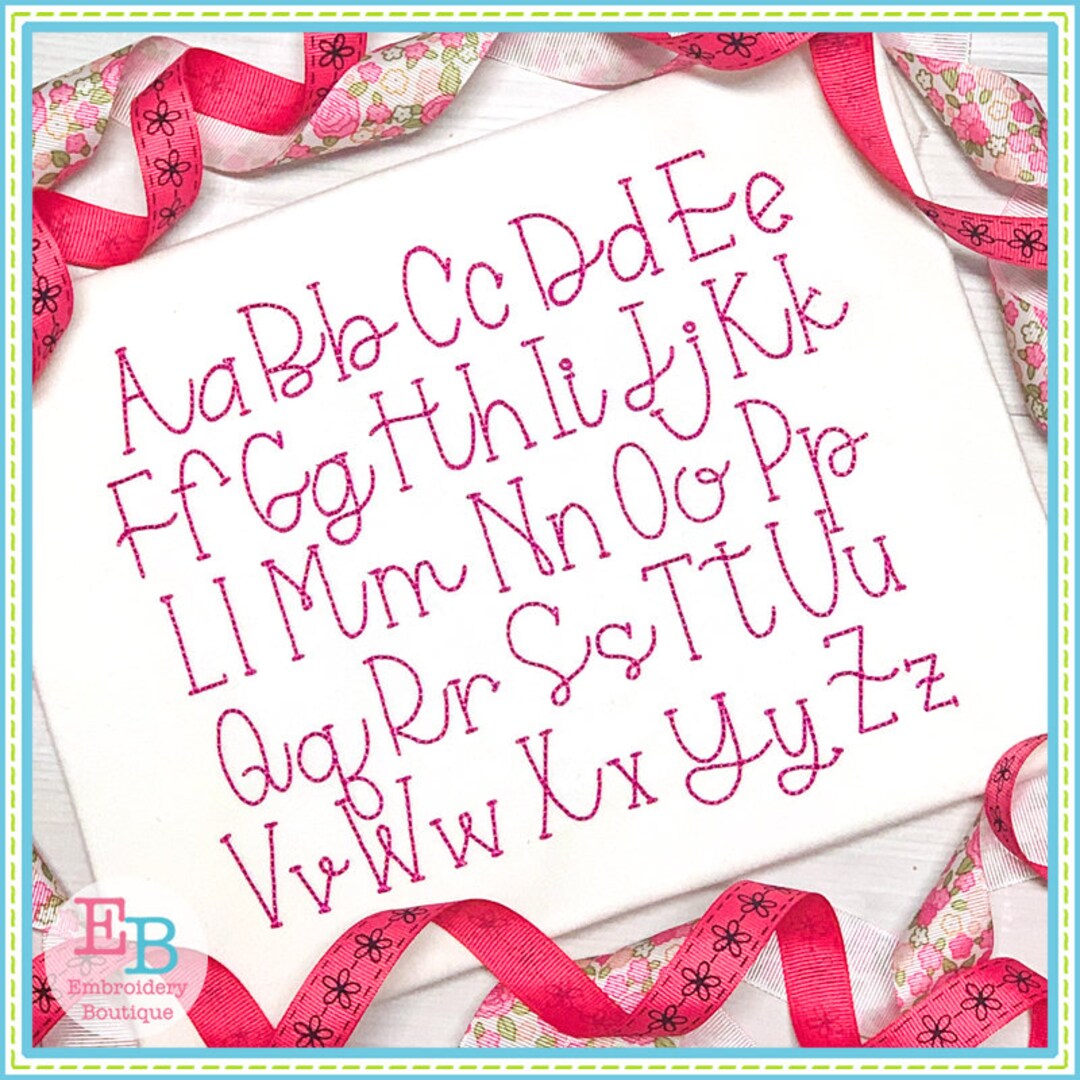 Aa Bb Cc Dd Ee
Ff Gg Hh Ii Jj Kk
Ll Mm Nn Oo Pp
Qq Rr Ss Tt Uu
Vv Ww Xx Yy Zz
EB
Embroidery
Boutique